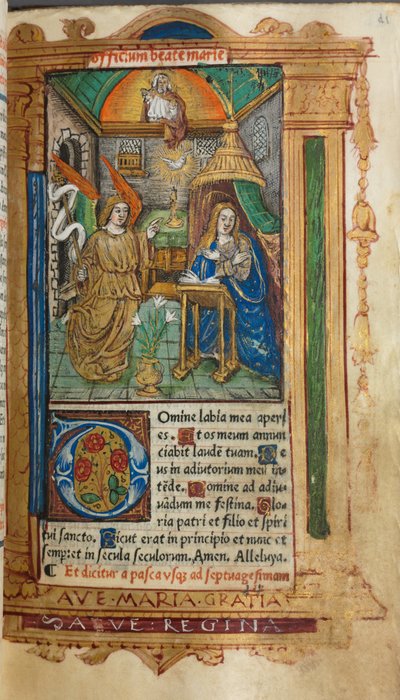 Officium beate marie
Domine labia mea aperi
es. Et os meum annun
ciabit laudē tuam. De
us in adiutorium meū in
tēde. Domine ad adiu
uādum me festina. Glo
ria patri et filio et spiri
tui sancto. Sicut erat in principio et nunc et
semp: et in secula seculorum. Amen. Alleluya.
Et dicitur a pasca vsqz ad septuagesimam
AVE: MARIA: GRATIA
SALVE: REGINA